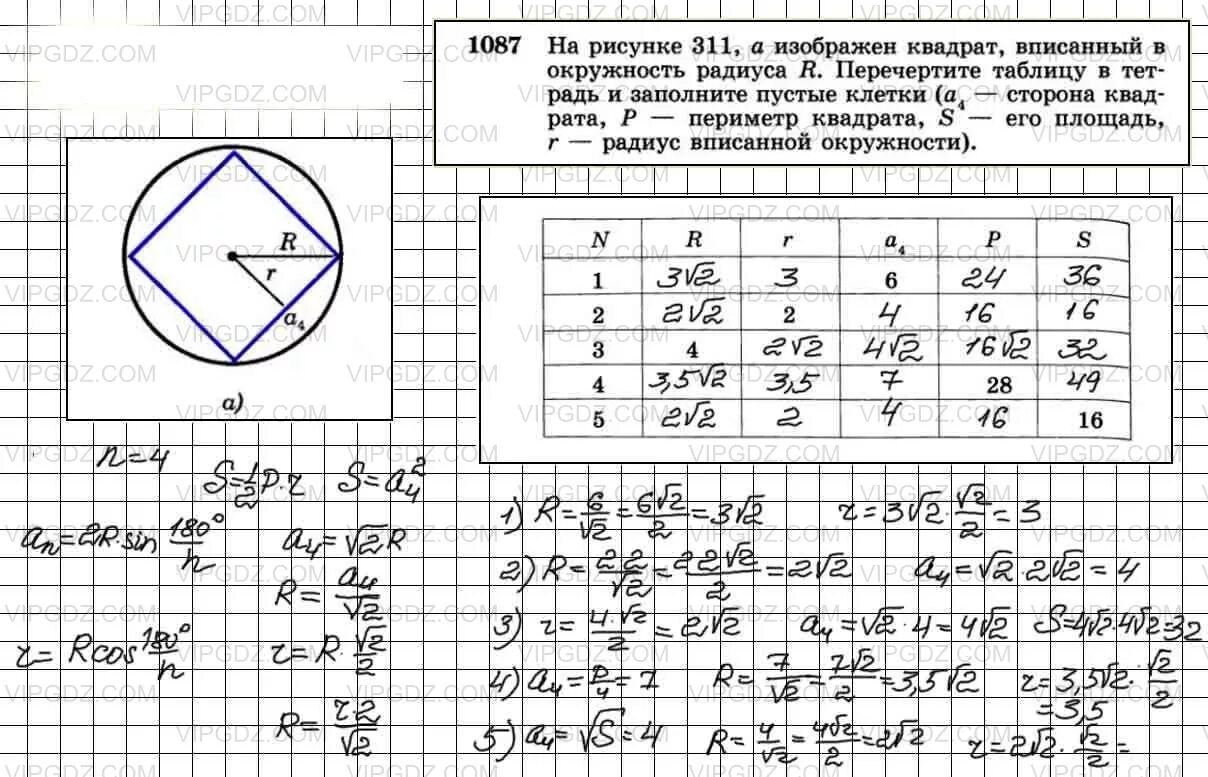 1087 На рисунке 311, а изображен квадрат, вписанный в
окружность радиуса R. Перечертите таблицу в тет-
радь и заполните пустые клетки (a₄ — сторона квад-
рата, P — периметр квадрата, S — его площадь,
r — радиус вписанной окружности).
R
r
a₄
а)
N R r a₄ P S
1 3√2 3 6 24 36
2 2√2 2 4 16 16
3 4 2√2 4√2 16√2 32
4 3,5√2 3,5 7 28 49
5 2√2 2 4 16 16
n=4
S=1/2 P·r S=a₄²
aₙ=2R·sin 180°/n a₄=√2R
R=a₄/√2
r=Rcos 180°/n r=R·√2/2
R=r·2/√2
1) R=6/√2=6√2/2=3√2 r=3√2·√2/2=3
2) R=2·2/√2=2·2√2/2=2√2 a₄=√2·2√2=4
3) r=4·√2/2=2√2 a₄=√2·4=4√2 S=4√2·4√2=32
4) a₄=P/4=7 R=7/√2=7√2/2=3,5√2 r=3,5√2·√2/2
=3,5
5) a₄=√S=4 R=4/√2=4√2/2=2√2 r=2√2·√2/2=
VIPGDZ.COM